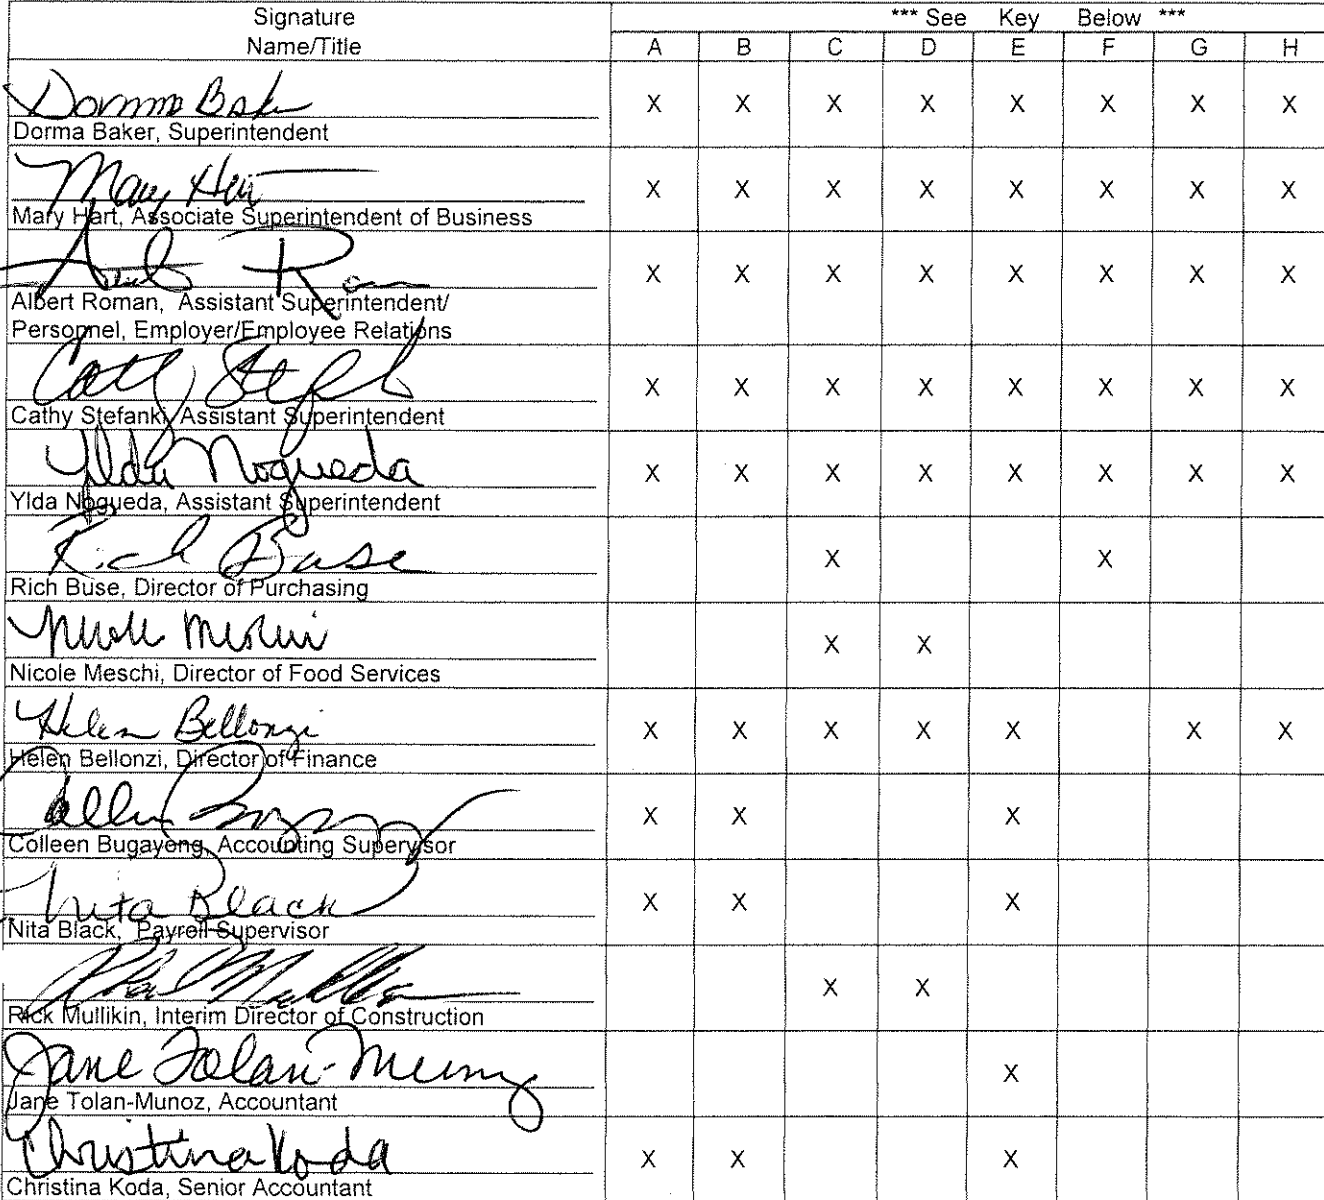 Signature
Name/Title
*** See Key Below ***
A B C D E F G H
Dorma Baker
X X X X X X X X
Dorma Baker, Superintendent
Mary Hart
X X X X X X X X
Mary Hart, Associate Superintendent of Business
Albert Roman
X X X X X X X X
Albert Roman, Assistant Superintendent/
Personnel, Employer/Employee Relations
Cathy Stefanki
X X X X X X X X
Cathy Stefanki, Assistant Superintendent
Ylda Nogueda
X X X X X X X X
Ylda Nogueda, Assistant Superintendent
Rich Buse
X X
Rich Buse, Director of Purchasing
Nicole Meschi
X X
Nicole Meschi, Director of Food Services
Helen Bellonzi
X X X X X X X
Helen Bellonzi, Director of Finance
Colleen Bugayong
X X X
Colleen Bugayong, Accounting Supervisor
Nita Black
X X X
Nita Black, Payroll Supervisor
X X
Rick Mullikin, Interim Director of Construction
Jane Tolan-Munoz
X
Jane Tolan-Munoz, Accountant
Christina Koda
X X X
Christina Koda, Senior Accountant